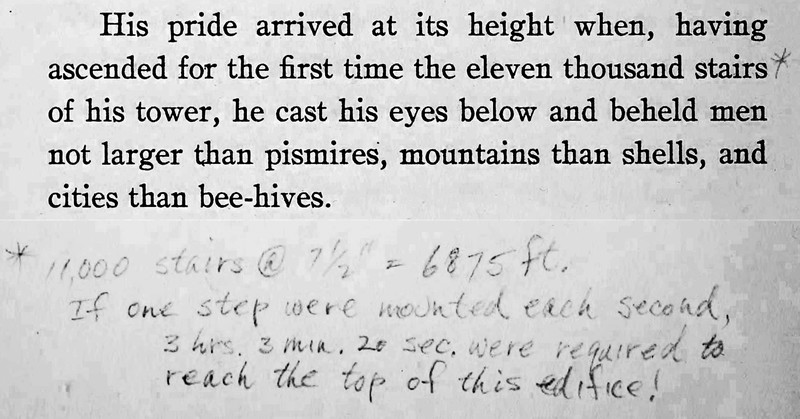 His pride arrived at its height when, having
ascended for the first time the eleven thousand stairs*
of his tower, he cast his eyes below and beheld men
not larger than pismires, mountains than shells, and
cities than bee-hives.
* 11,000 stairs @ 7½" = 6875 ft.
If one step were mounted each second,
3 hrs. 3 min. 20 sec. were required to
reach the top of this edifice!